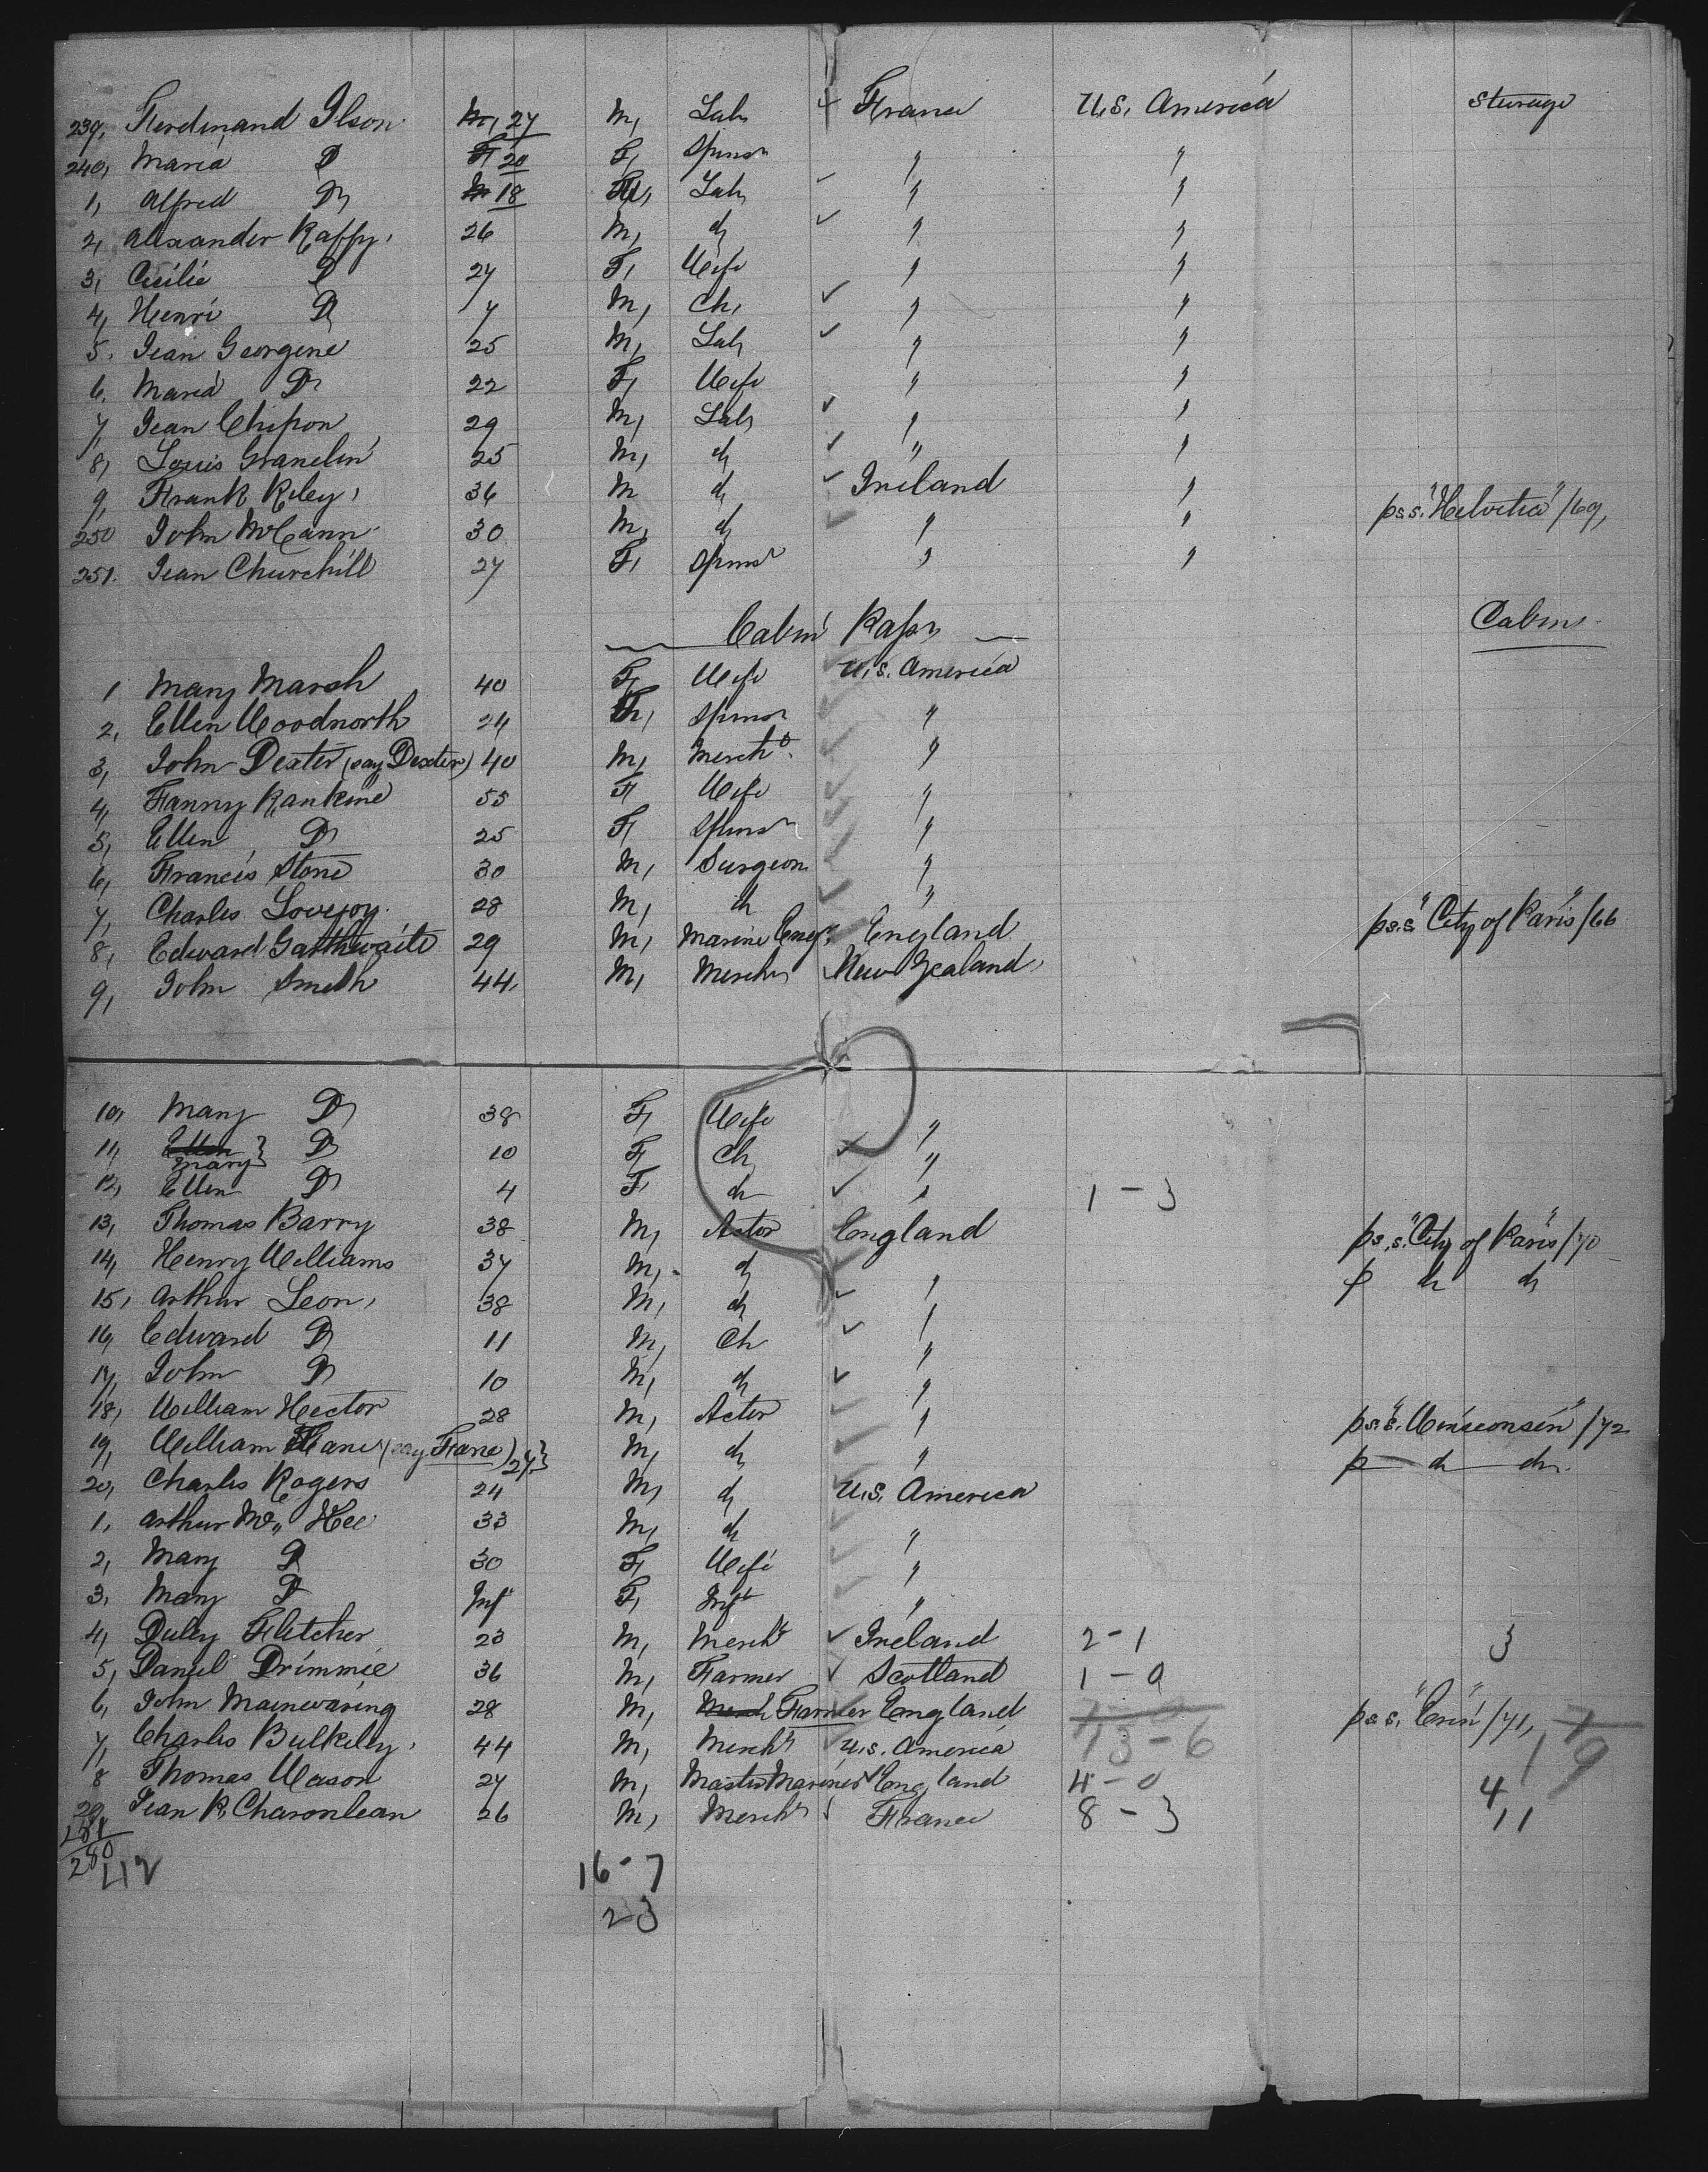 239, Ferdinand Ilson M, 27 M, Lab ✓ France U.S. America Steerage
240, Maria Do F 20 F, Spinsr " "
1, Alfred Do M 18 M, Lab ✓ " "
2, Alexander Raffy, 26 M, do ✓ " "
3, Cecilie Do 27 F, Wife " "
4, Henri Do 7 M, Ch, ✓ " "
5. Jean Georgene 25 M, Lab ✓ " "
6. Maria Do 22 F, Wife " "
7, Jean Chipon 29 M, Lab ✓ " "
8, Louis Granelin 25 M, do ✓ " "
9, Frank Riley, 36 M do ✓ Ireland " pss. "Helvetia"/69,
250 John McCann 30 M, do ✓ " "
251. Jean Churchill 27 F, Spinsr " "
Cabin Passrs Cabin
1 Mary Marsh 40 F, Wife ✓ U.S. America
2, Ellen Woodnorth 24 F, Spinsr ✓ "
3, John Dexter (say Dexter) 40 M, Mercht. ✓ "
4, Fanny Rankine 55 F Wife ✓ "
5, Ellen Do 25 F, Spinsr ✓ "
6, Francis Stone 30 M, Surgeon ✓ "
7, Charles Lovejoy. 28 M, do ✓ "
8, Edward Garthwaite 29 M, Marine Engr. ✓ England pss "City of Paris"/66
9, John Smith 44, M, Mercht ✓ New Zealand,
10, Mary Do 38 F, Wife "
11, Ellen Mary } Do 10 F, Ch ✓ "
12, Ellen Do 4 F, do ✓ " 1-3
13, Thomas Barry 38 M, Actor England pss. "City of Paris"/70
14, Henry Williams 37 M, do ✓ " p do do
15, Arthur Leon, 38 M, do ✓ "
16, Edward Do 11 M, Ch ✓ "
17, John Do 10 M, do ✓ "
18, William Hector 28 M, Actor ✓ " pss. "Winsconsin"/72
19, William Fane (say Fane) 27} M, do ✓ " p do do.
20, Charles Rogers 24 M, do ✓ U.S. America
1, Arthur Mc" Kee 33 M, do ✓ "
2, Mary Do 30 F, Wife ✓ "
3, Mary Do Inf F, Inft ✓ "
4, Duley Fletcher 23 M, Mercht ✓ Ireland 2-1 3
5, Daniel Drimmie 36 M, Farmer ✓ Scotland 1-0
6, John Mainwaring 28 M, Merch Farmer England pss. "Erin"/71,
7, Charles Bulkelly, 44 M, Mercht ✓ U.S. America 13-6 19
8 Thomas Mason 27 M, Master Mariner ✓ England 4-0 4
29, Jean R. Charonlean 26 M, Mercht ✓ France 8-3 11
251
280
412 16-7
23